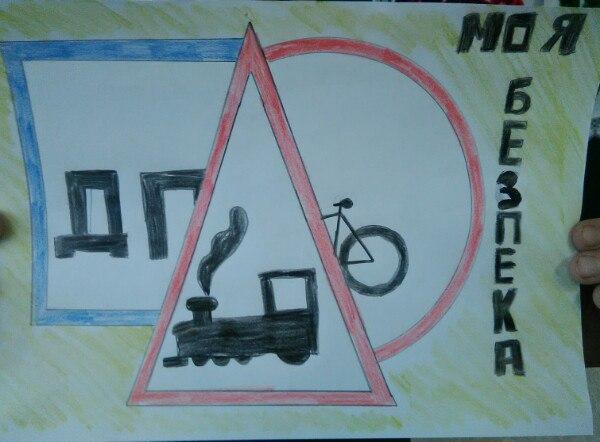 МОЯ
БЕЗПЕКА
ДП